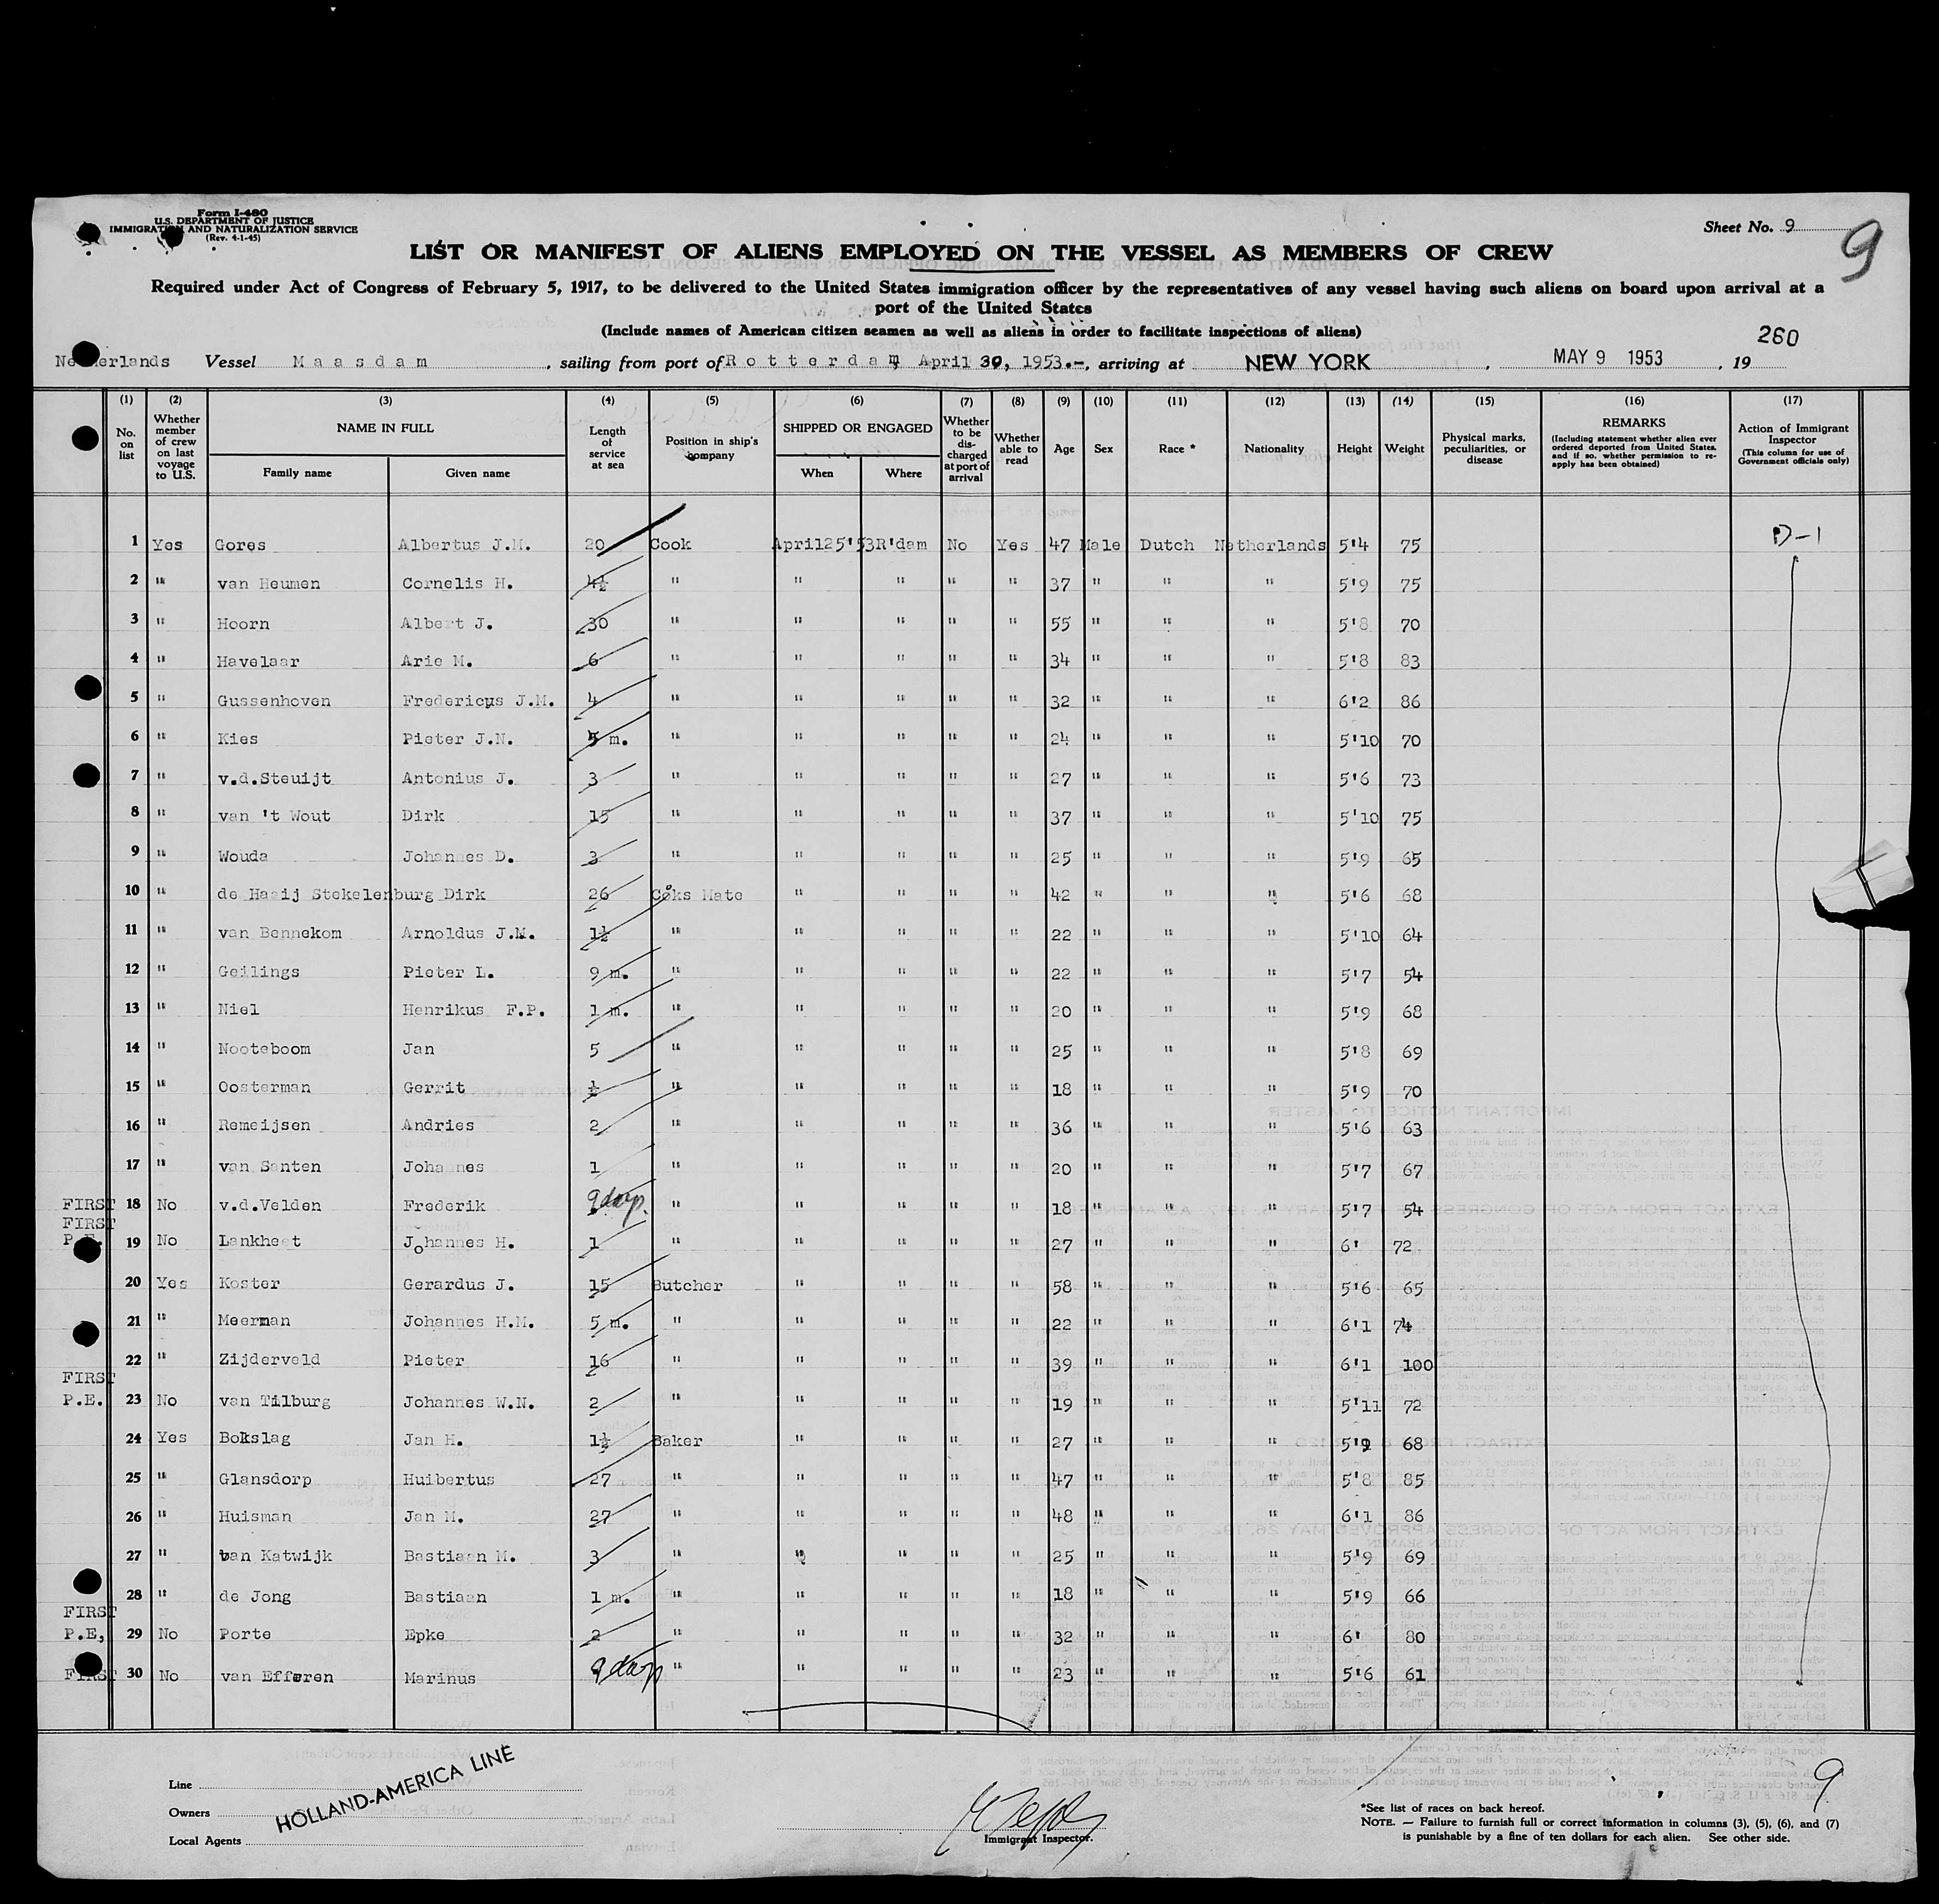 Form I-480
U.S. DEPARTMENT OF JUSTICE
IMMIGRATION AND NATURALIZATION SERVICE
(Rev. 4-1-45)
Sheet No. 9
9
LIST OR MANIFEST OF ALIENS EMPLOYED ON THE VESSEL AS MEMBERS OF CREW
Required under Act of Congress of February 5, 1917, to be delivered to the United States immigration officer by the representatives of any vessel having such aliens on board upon arrival at a
port of the United States
(Include names of American citizen seamen as well as aliens in order to facilitate inspections of aliens)
260
Netherlands Vessel Maasdam, sailing from port of Rotterdam April 30, 1953.-, arriving at NEW YORK, MAY 9 1953, 19
(1) (2) (3) (4) (5) (6) (7) (8) (9) (10) (11) (12) (13) (14) (15) (16) (17)
No. on list
Whether member of crew on last voyage to U.S.
NAME IN FULL
Family name Given name
Length of service at sea
Position in ship's company
SHIPPED OR ENGAGED
When Where
Whether to be discharged at port of arrival
Whether able to read
Age Sex Race * Nationality Height Weight
Physical marks, peculiarities, or disease
REMARKS
(Including statement whether alien ever ordered deported from United States, and if so, whether permission to reapply has been obtained)
Action of Immigrant Inspector
(This column for use of Government officials only)
1 Yes Gores Albertus J.M. 20 Cook April25'53 R'dam No Yes 47 Male Dutch Netherlands 5'4 75 D-1
2 " van Heumen Cornelis H. 4½ " " " " " 37 " " " 5'9 75
3 " Hoorn Albert J. 30 " " " " " 55 " " " 5'8 70
4 " Havelaar Arie M. 6 " " " " " 34 " " " 5'8 83
5 " Gussenhoven Fredericus J.M. 4 " " " " " 32 " " " 6'2 86
6 " Kies Pieter J.N. 5 m. " " " " " 24 " " " 5'10 70
7 " v.d.Steuijt Antonius J. 3 " " " " " 27 " " " 5'6 73
8 " van 't Wout Dirk 15 " " " " " 37 " " " 5'10 75
9 " Wouda Johannes D. 3 " " " " " 25 " " " 5'9 65
10 " de Haaij Stekelenburg Dirk 26 Coks Mate " " " " 42 " " " 5'6 68
11 " van Bennekom Arnoldus J.M. 1½ " " " " " 22 " " " 5'10 64
12 " Geilings Pieter L. 9 m. " " " " " 22 " " " 5'7 54
13 " Niel Henrikus F.P. 1 m. " " " " " 20 " " " 5'9 68
14 " Nooteboom Jan 5 " " " " " 25 " " " 5'8 69
15 " Oosterman Gerrit ½ " " " " " 18 " " " 5'9 70
16 " Remeijsen Andries 2 " " " " " 36 " " " 5'6 63
17 " van Santen Johannes 1 " " " " " 20 " " " 5'7 67
FIRST 18 No v.d.Velden Frederik 9 days " " " " " 18 " " " 5'7 54
FIRST
P.E. 19 No Lankheet Johannes H. 1 " " " " " 27 " " " 6' 72
20 Yes Koster Gerardus J. 15 Butcher " " " " 58 " " " 5'6 65
21 " Meerman Johannes H.M. 5 m. " " " " " 22 " " " 6'1 74
22 " Zijderveld Pieter 16 " " " " " 39 " " " 6'1 100
FIRST
P.E. 23 No van Tilburg Johannes W.N. 2 " " " " " 19 " " " 5'11 72
24 Yes Bokslag Jan H. 1½ Baker " " " " 27 " " " 5'9 68
25 " Glansdorp Huibertus 27 " " " " " 47 " " " 5'8 85
26 " Huisman Jan M. 27 " " " " " 48 " " " 6'1 86
27 " van Katwijk Bastiaan M. 3 " " " " " 25 " " " 5'9 69
28 " de Jong Bastiaan 1 m. " " " " " 18 " " " 5'9 66
FIRST
P.E, 29 No Porte Epke 2 " " " " " 32 " " " 6' 80
FIRST 30 No van Efferen Marinus 9 days " " " " " 23 " " " 5'6 61
Line
Owners
Local Agents
HOLLAND-AMERICA LINE
Immigrant Inspector.
9
*See list of races on back hereof.
NOTE. — Failure to furnish full or correct information in columns (3), (5), (6), and (7)
is punishable by a fine of ten dollars for each alien. See other side.